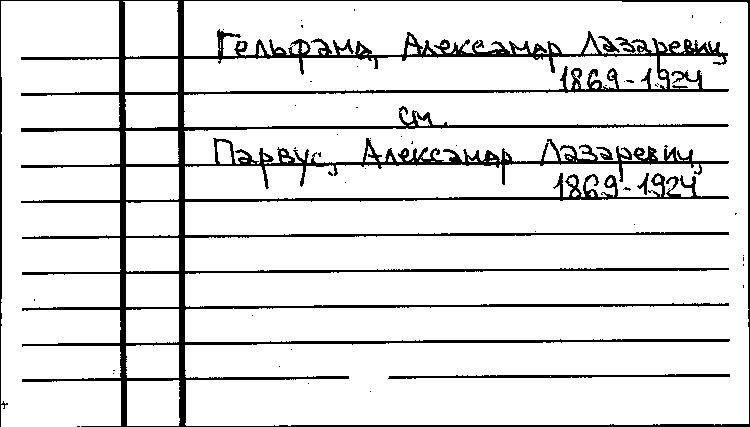 Гельфанд, Александр Лазаревич,
1869-1924
см.
Парвус, Александр Лазаревич,
1869-1924